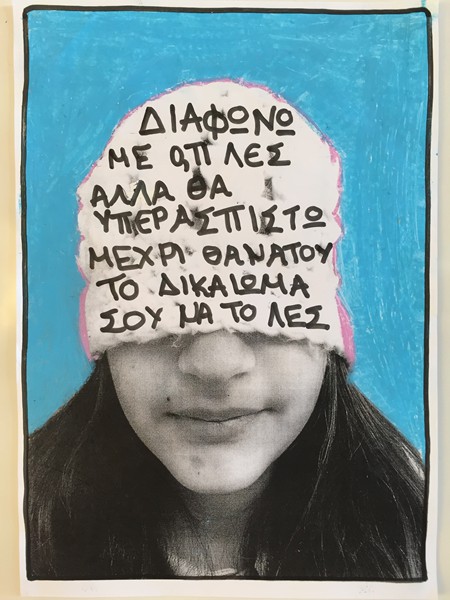 ΔΙΑΦΩΝΩ
ΜΕ Ο,ΤΙ ΛΕΣ
ΑΛΛΑ ΘΑ
ΥΠΕΡΑΣΠΙΣΤΩ
ΜΕΧΡΙ ΘΑΝΑΤΟΥ
ΤΟ ΔΙΚΑΙΩΜΑ
ΣΟΥ ΝΑ ΤΟ ΛΕΣ